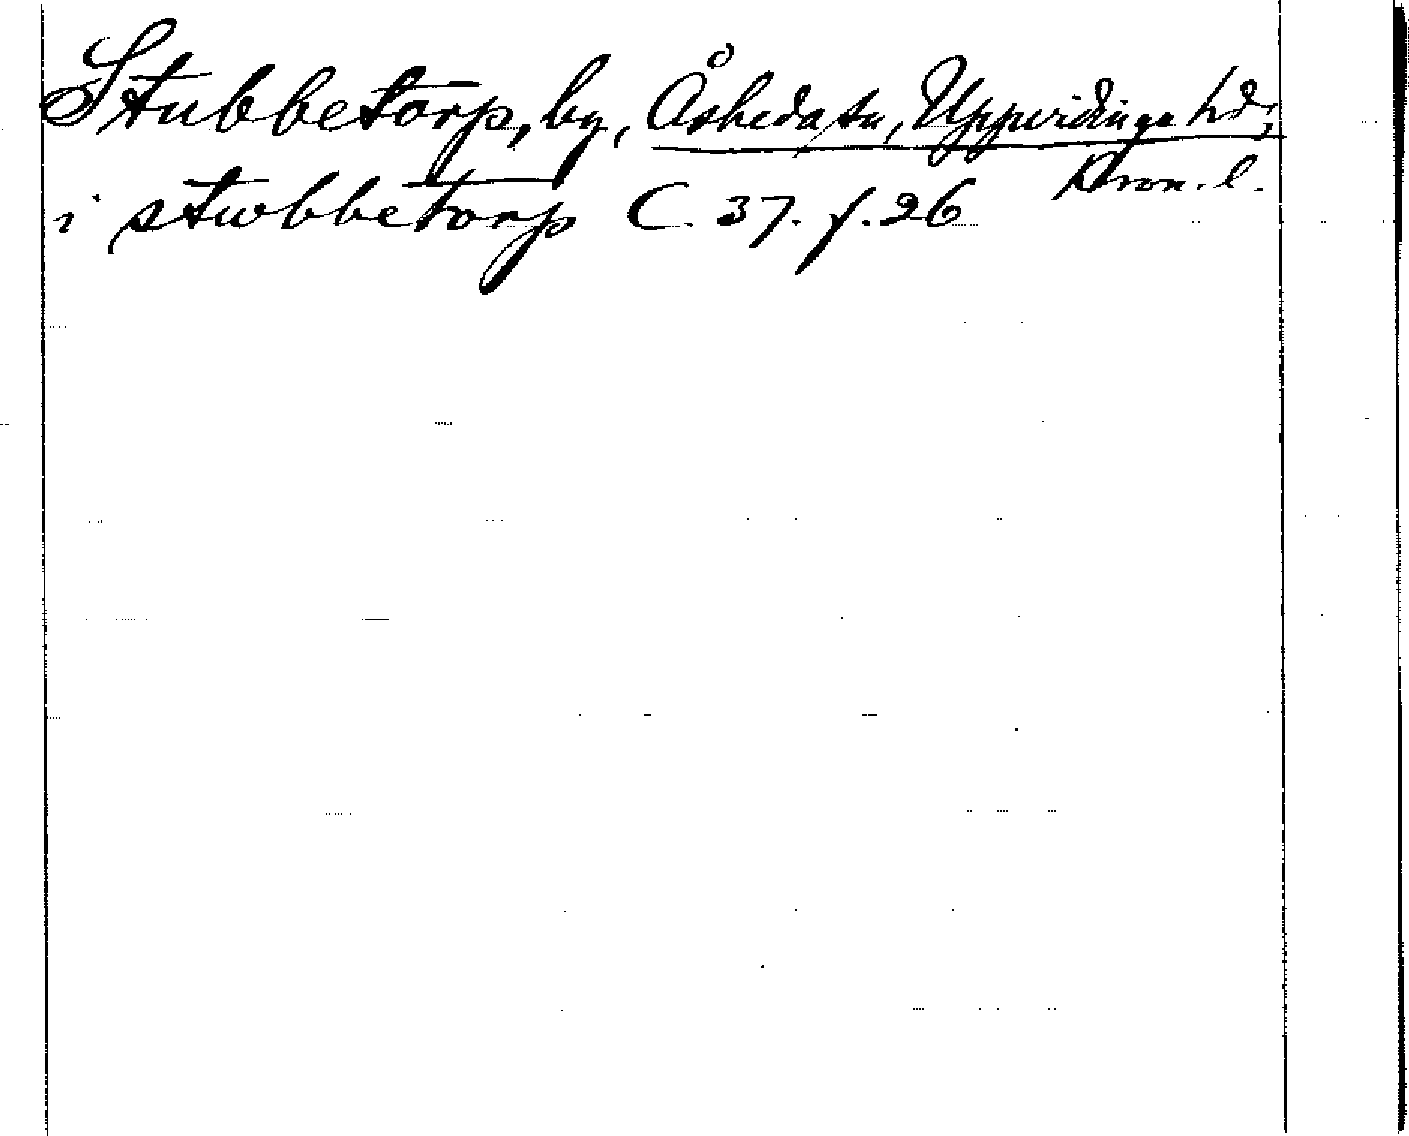 Stubbetorp, by, Åsheda sn, Uppvidinge hd;
Kron. l.
i stwbbetorp C. 37. f. 26